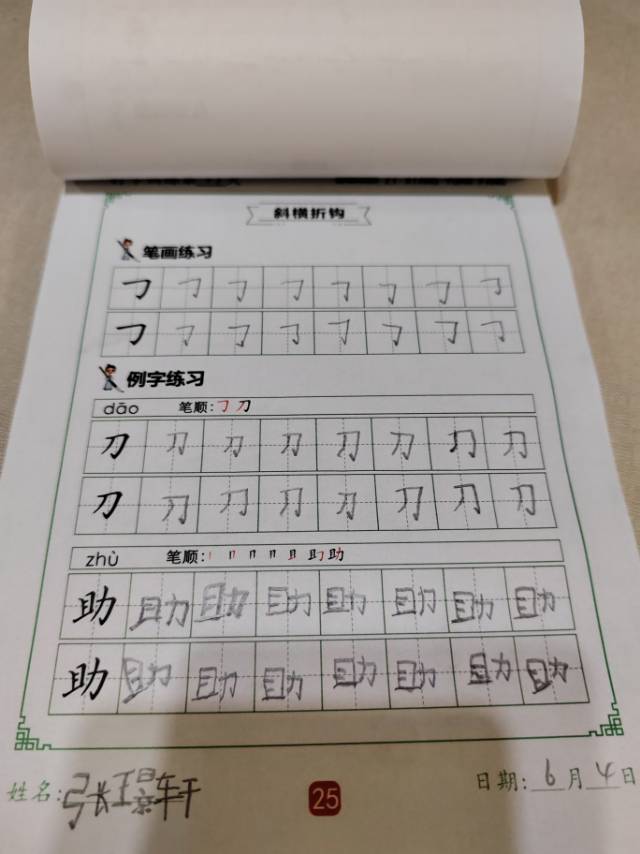 斜横折钩
笔画练习
㇆ ㇆ ㇆ ㇆ ㇆ ㇆ ㇆ ㇆
㇆ ㇆ ㇆ ㇆ ㇆ ㇆ ㇆ ㇆
例字练习
dāo 笔顺:㇆ 刀
刀 刀 刀 刀 刀 刀 刀 刀
刀 刀 刀 刀 刀 刀 刀 刀
zhù 笔顺:
助 助 助 助 助 助 助 助
助 助 助 助 助 助 助 助
姓名:张璟轩 25 日期:6月4日